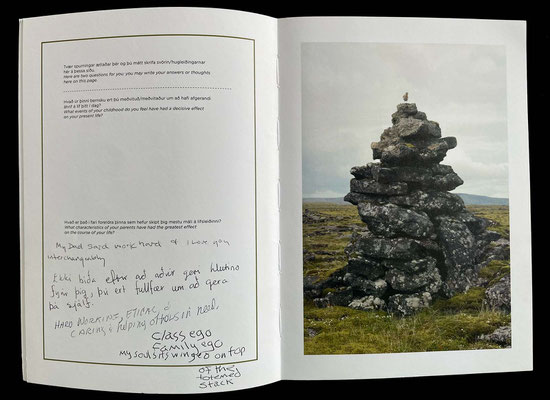 Tvær spurningar ætlaðar þér og þú mátt skrifa svörin/hugleiðingarnar
hér á þessa síðu.
Here are two questions for you; you may write your answers or thoughts
here on this page.
Hvað úr þinni bernsku ert þú meðvituð/meðvitaður um að hafi afgerandi
áhrif á líf þitt í dag?
What events of your childhood do you feel have had a decisive effect
on your present life?
Hvað er það í fari foreldra þinna sem hefur skipt þig mestu máli á lífsleiðinni?
What characteristics of your parents have had the greatest effect
on the course of your life?
My Dad said work hard & I love you
interchangeably
Ekki bíða eftir að aðrir geri hlutina
fyrir þig, þú ert fullfær um að gera
það sjálf.
HARD WORKING, ETHICAL, &
CARING & helping others in need.
class ego
Family ego
my soul sits winged on top
of the
totemed
stack